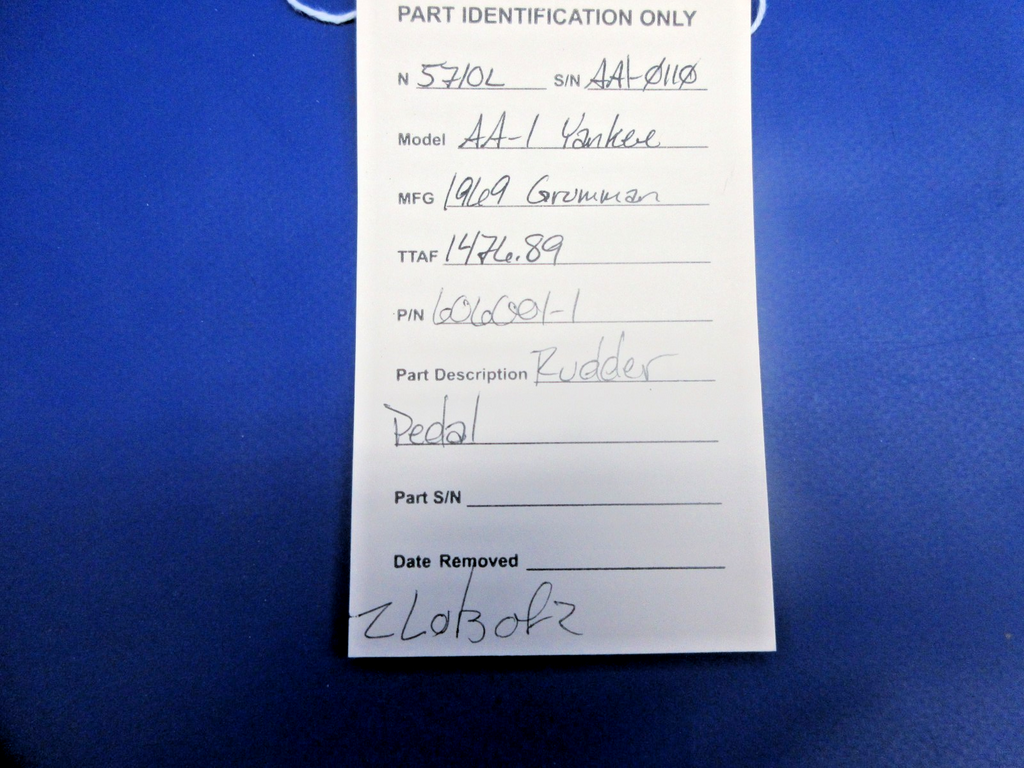 PART IDENTIFICATION ONLY
N 5710L S/N AA1-0110
Model AA-1 Yankee
MFG 1969 Grumman
TTAF 1476.89
P/N 606001-1
Part Description Rudder
Pedal
Part S/N
Date Removed